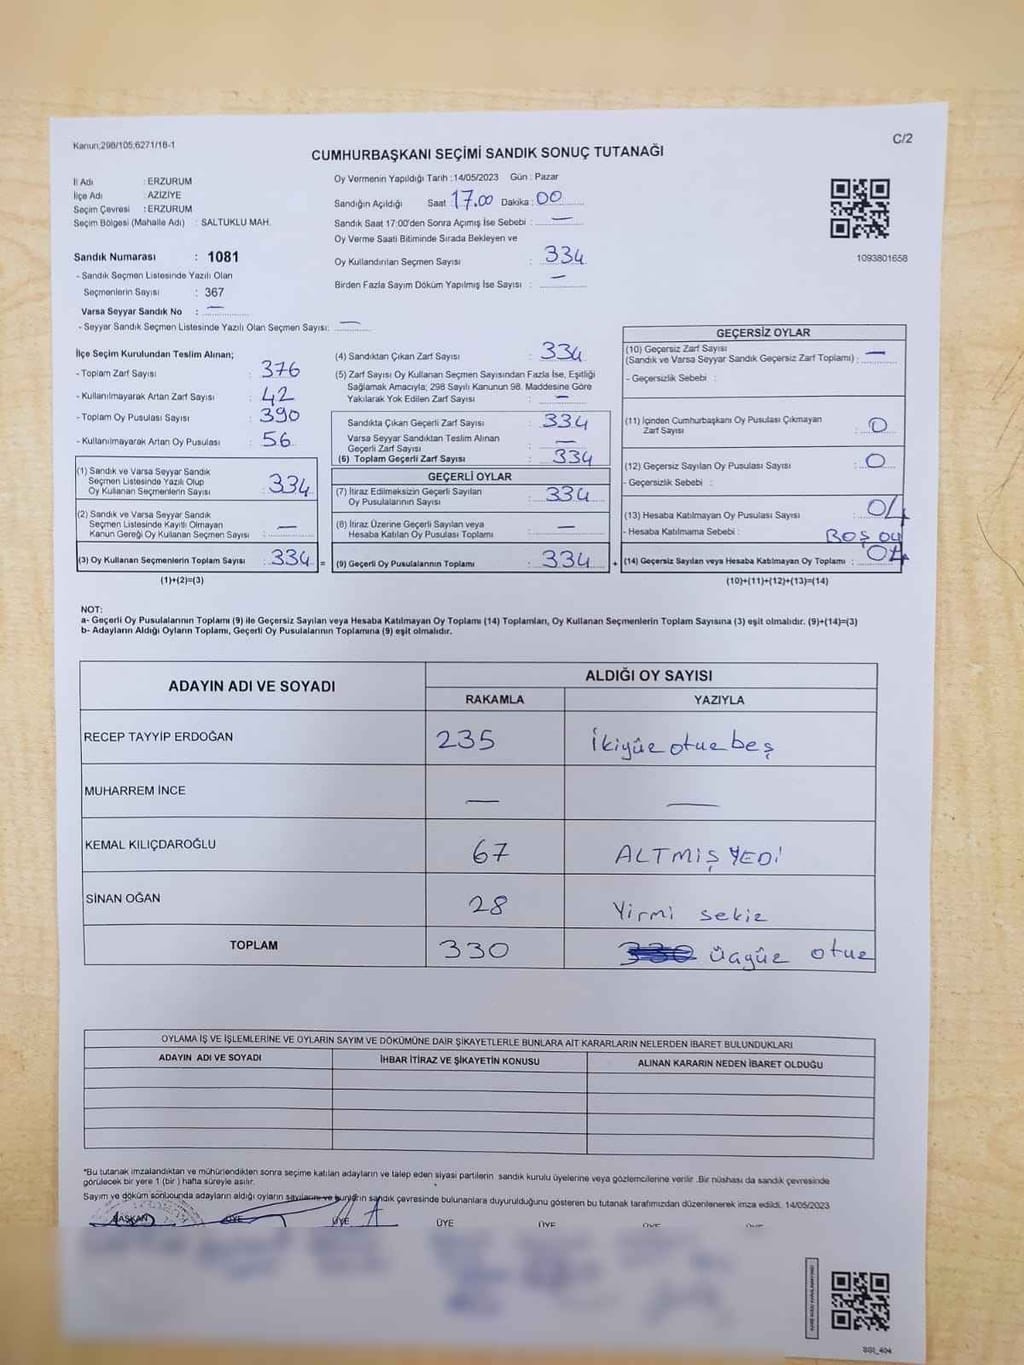 Kanun;298/105;6271/18-1
C/2
CUMHURBAŞKANI SEÇİMİ SANDIK SONUÇ TUTANAĞI
İl Adı : ERZURUM
İlçe Adı : AZİZİYE
Seçim Çevresi : ERZURUM
Seçim Bölgesi (Mahalle Adı) : SALTUKLU MAH.
Sandık Numarası : 1081
- Sandık Seçmen Listesinde Yazılı Olan
Seçmenlerin Sayısı : 367
Varsa Seyyar Sandık No : —
- Seyyar Sandık Seçmen Listesinde Yazılı Olan Seçmen Sayısı: —
Oy Vermenin Yapıldığı Tarih :14/05/2023 Gün : Pazar
Sandığın Açıldığı Saat 17.00 Dakika : 00
Sandık Saat 17:00'den Sonra Açımış İse Sebebi : —
Oy Verme Saati Bitiminde Sırada Bekleyen ve
Oy Kullandırılan Seçmen Sayısı : 334
Birden Fazla Sayım Döküm Yapılmış İse Sayısı : —
1093801658
İlçe Seçim Kurulundan Teslim Alınan;
- Toplam Zarf Sayısı : 376
- Kullanılmayarak Artan Zarf Sayısı : 42
- Toplam Oy Pusulası Sayısı : 390
- Kullanılmayarak Artan Oy Pusulası : 56
(1) Sandık ve Varsa Seyyar Sandık
Seçmen Listesinde Yazılı Olup
Oy Kullanan Seçmenlerin Sayısı : 334
(2) Sandık ve Varsa Seyyar Sandık
Seçmen Listesinde Kayıtlı Olmayan
Kanun Gereği Oy Kullanan Seçmen Sayısı : —
(3) Oy Kullanan Seçmenlerin Toplam Sayısı : 334 =
(1)+(2)=(3)
(4) Sandıktan Çıkan Zarf Sayısı : 334
(5) Zarf Sayısı Oy Kullanan Seçmen Sayısından Fazla İse, Eşitliği
Sağlamak Amacıyla; 298 Sayılı Kanunun 98. Maddesine Göre
Yakılarak Yok Edilen Zarf Sayısı : —
Sandıkta Çıkan Geçerli Zarf Sayısı : 334
Varsa Seyyar Sandıktan Teslim Alınan
Geçerli Zarf Sayısı : —
(6) Toplam Geçerli Zarf Sayısı : 334
GEÇERLİ OYLAR
(7) İtiraz Edilmeksizin Geçerli Sayılan
Oy Pusulalarının Sayısı : 334
(8) İtiraz Üzerine Geçerli Sayılan veya
Hesaba Katılan Oy Pusulası Toplamı : —
(9) Geçerli Oy Pusulalarının Toplamı : 334 +
GEÇERSİZ OYLAR
(10) Geçersiz Zarf Sayısı
(Sandık ve Varsa Seyyar Sandık Geçersiz Zarf Toplamı) : —
- Geçersizlik Sebebi :
(11) İçinden Cumhurbaşkanı Oy Pusulası Çıkmayan
Zarf Sayısı : 0
(12) Geçersiz Sayılan Oy Pusulası Sayısı : 0
- Geçersizlik Sebebi :
(13) Hesaba Katılmayan Oy Pusulası Sayısı : 04
- Hesaba Katılmama Sebebi : BOŞ OY
(14) Geçersiz Sayılan veya Hesaba Katılmayan Oy Toplamı : 04
(10)+(11)+(12)+(13)=(14)
NOT:
a- Geçerli Oy Pusulalarının Toplamı (9) ile Geçersiz Sayılan veya Hesaba Katılmayan Oy Toplamı (14) Toplamları, Oy Kullanan Seçmenlerin Toplam Sayısına (3) eşit olmalıdır. (9)+(14)=(3)
b- Adayların Aldığı Oyların Toplamı, Geçerli Oy Pusulalarının Toplamına (9) eşit olmalıdır.
ADAYIN ADI VE SOYADI
ALDIĞI OY SAYISI
RAKAMLA YAZIYLA
RECEP TAYYİP ERDOĞAN 235 İkiyüz otuz beş
MUHARREM İNCE — —
KEMAL KILIÇDAROĞLU 67 ALTMIŞ YEDİ
SİNAN OĞAN 28 Yirmi sekiz
TOPLAM 330 330 üçyüz otuz
OYLAMA İŞ VE İŞLEMLERİNE VE OYLARIN SAYIM VE DÖKÜMÜNE DAİR ŞİKAYETLERLE BUNLARA AİT KARARLARIN NELERDEN İBARET BULUNDUKLARI
ADAYIN ADI VE SOYADI İHBAR İTİRAZ VE ŞİKAYETİN KONUSU ALINAN KARARIN NEDEN İBARET OLDUĞU
*Bu tutanak imzalandıktan ve mühürlendikten sonra seçime katılan adayların ve talep eden siyasi partilerin sandık kurulu üyelerine veya gözlemcilerine verilir .Bir nüshası da sandık çevresinde
görülecek bir yere 1 (bir ) hafta süreyle asılır.
Sayım ve döküm sonucunda adayların aldığı oyların sayılarını ve bunların sandık çevresinde bulunanlara duyurulduğunu gösteren bu tutanak tarafımızdan düzenlenerek imza edildi. 14/05/2023
BAŞKAN ÜYE ÜYE ÜYE ÜYE